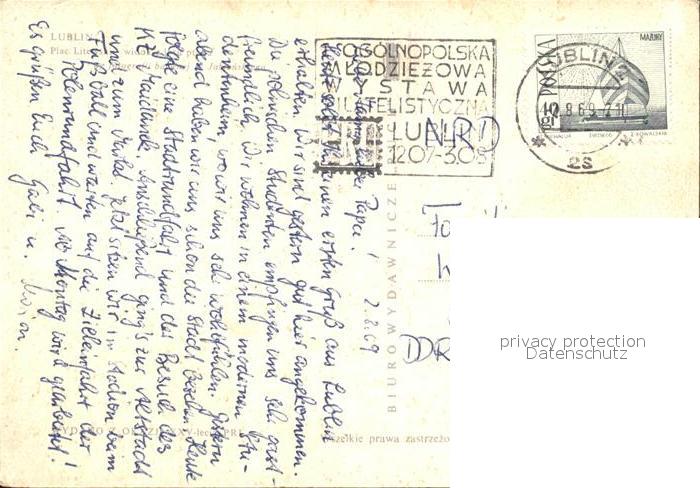 LUBLIN
Plac Lite
OGÓLNOPOLSKA
MŁODZIEŻOWA
WYSTAWA
FILATELISTYCZNA
LUBLIN
12.07-3.08
NRD
POLSKA
MAZURY
LUBLIN 2
2.8.69
Papa!
Herzliche einen ersten Gruß aus Lublin
erhalten. Wir sind gestern gut hier angekommen.
Die polnischen Studenten empfingen uns sehr gast-
freundlich. Wir wohnen in einem modernen Stu-
dentenheim, wo wir uns sehr wohlfühlen. Gestern
abend haben wir uns schon die Stadt besehen. Heute
folgte eine Stadtrundfahrt und der Besuch des
KZ Maidanek. Anschließend ging's zur Altstadt
und zum Markt. Jetzt sitzen wir im Stadion beim
Fußball und warten auf die Zieleinfahrt der
Polenrundfahrt. Ab Montag wird gearbeitet!
Es grüßen Euch Gabi u.
BIURO WYDAWNICZE
DDR
Wszelkie prawa zastrzeżo
privacy protection
Datenschutz